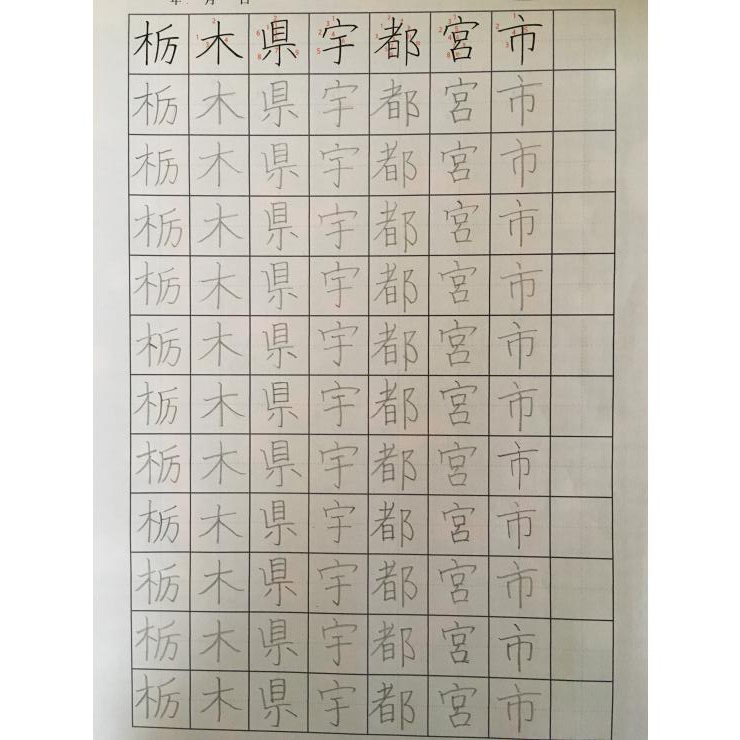 年 月 日
栃木県宇都宮市
栃木県宇都宮市
栃木県宇都宮市
栃木県宇都宮市
栃木県宇都宮市
栃木県宇都宮市
栃木県宇都宮市
栃木県宇都宮市
栃木県宇都宮市
栃木県宇都宮市
栃木県宇都宮市
栃木県宇都宮市